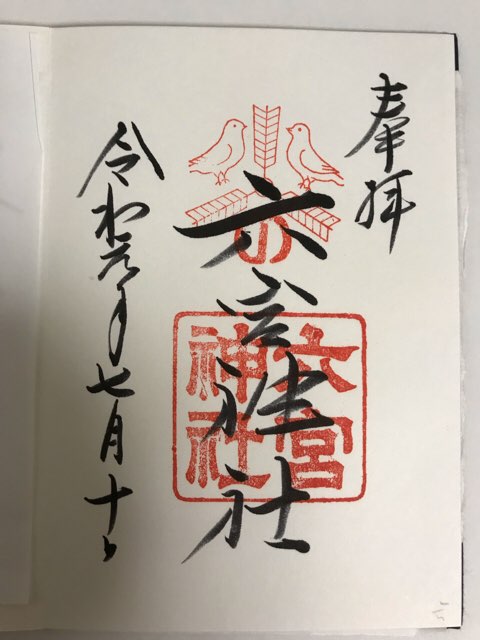 奉拝
六宮神社
六宮
神社
令和元年七月十日